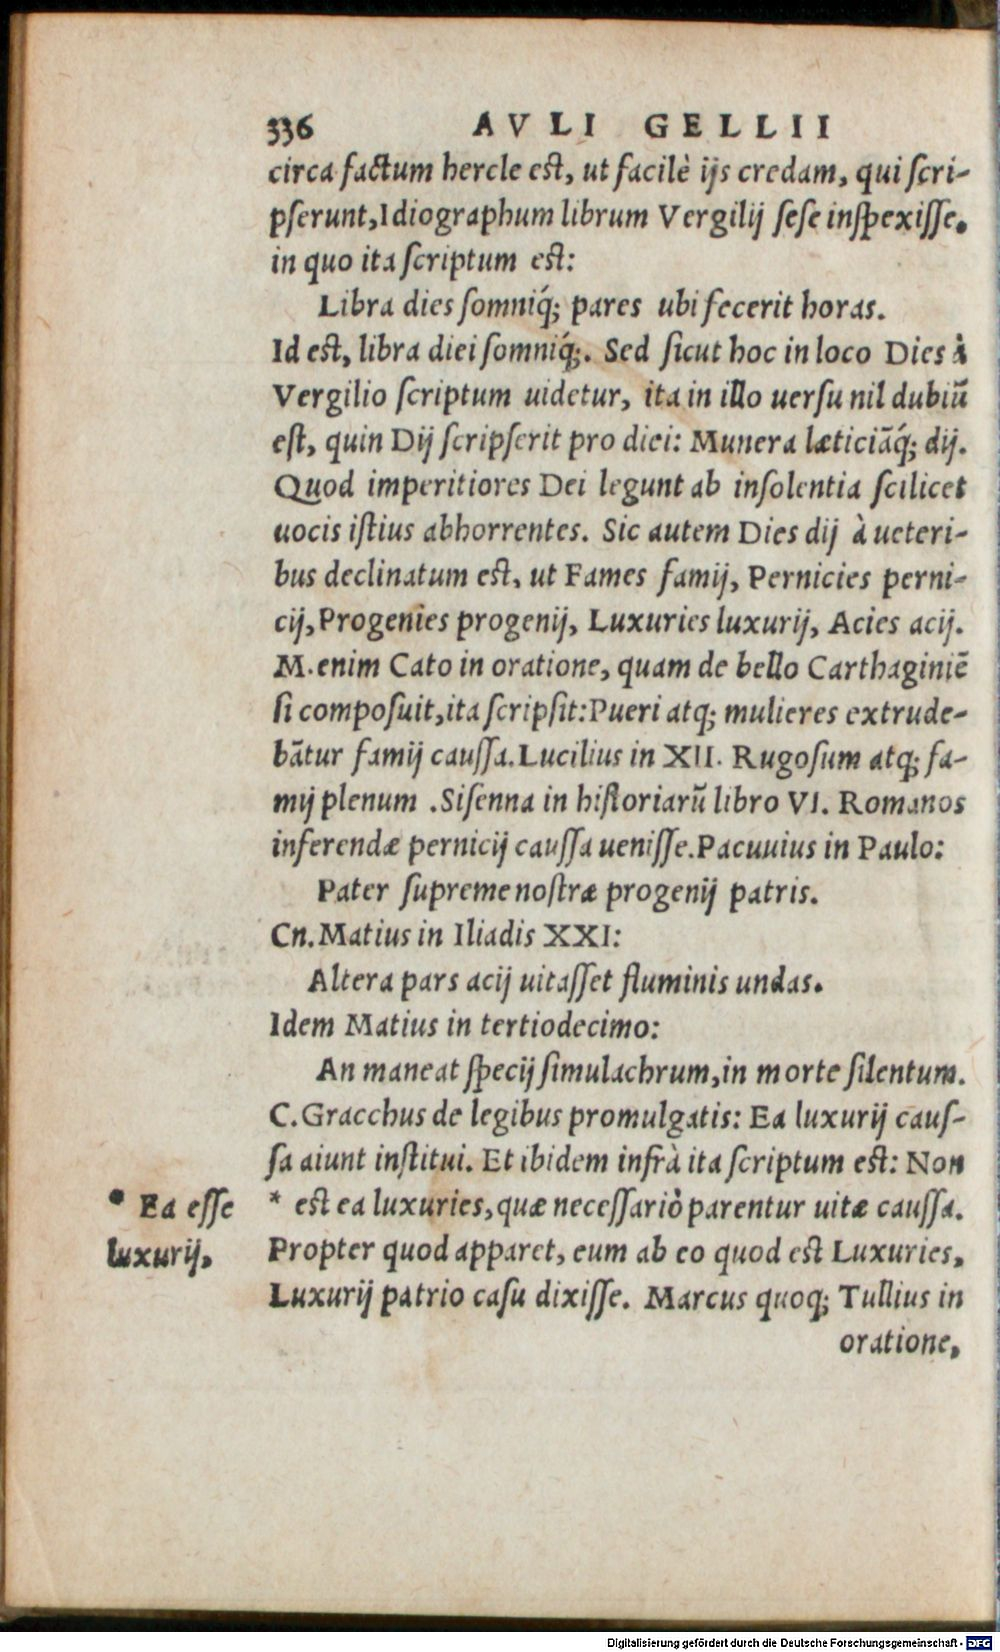 336 AVLI GELLII
circa factum hercle est, ut facilè ijs credam, qui scri-
pserunt, Idiographum librum Vergilij sese inspexisse.
in quo ita scriptum est:
Libra dies somniq́; pares ubi fecerit horas.
Id est, libra diei somniq́;. Sed sicut hoc in loco Dies à
Vergilio scriptum uidetur, ita in illo uersu nil dubiū
est, quin Dij scripserit pro diei: Munera læticiāq́; dij.
Quod imperitiores Dei legunt ab insolentia scilicet
uocis istius abhorrentes. Sic autem Dies dij à ueteri-
bus declinatum est, ut Fames famij, Pernicies perni-
cij, Progenies progenij, Luxuries luxurij, Acies acij.
M. enim Cato in oratione, quam de bello Carthaginiē
si composuit, ita scripsit: Pueri atq; mulieres extrude-
bātur famij caussa. Lucilius in XII. Rugosum atq; fa-
mij plenum . Sisenna in historiarū libro VI. Romanos
inferendæ pernicij caussa uenisse. Pacuuius in Paulo:
Pater supreme nostræ progenij patris.
Cn. Matius in Iliadis XXI:
Altera pars acij uitasset fluminis undas.
Idem Matius in tertiodecimo:
An maneat specij simulachrum, in morte silentum.
C. Gracchus de legibus promulgatis: Ea luxurij caus-
sa aiunt institui. Et ibidem infrà ita scriptum est: Non
* est ea luxuries, quæ necessariò parentur uitæ caussa.
* Ea esse
luxurij,
Propter quod apparet, eum ab eo quod est Luxuries,
Luxurij patrio casu dixisse. Marcus quoq; Tullius in
oratione,
Digitalisierung gefördert durch die Deutsche Forschungsgemeinschaft - DFG